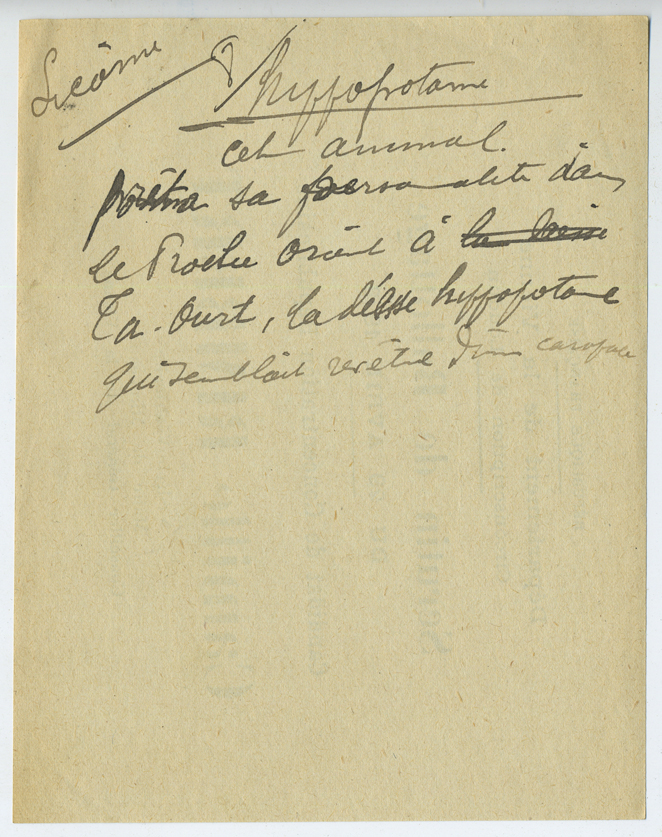 Licorne
hyppopotame
cet animal.
prêta sa personalité dans
le Proche Orient à la
Ta-Ourt, la déesse hyppopotame
qui semblait revêtue d'une carapace